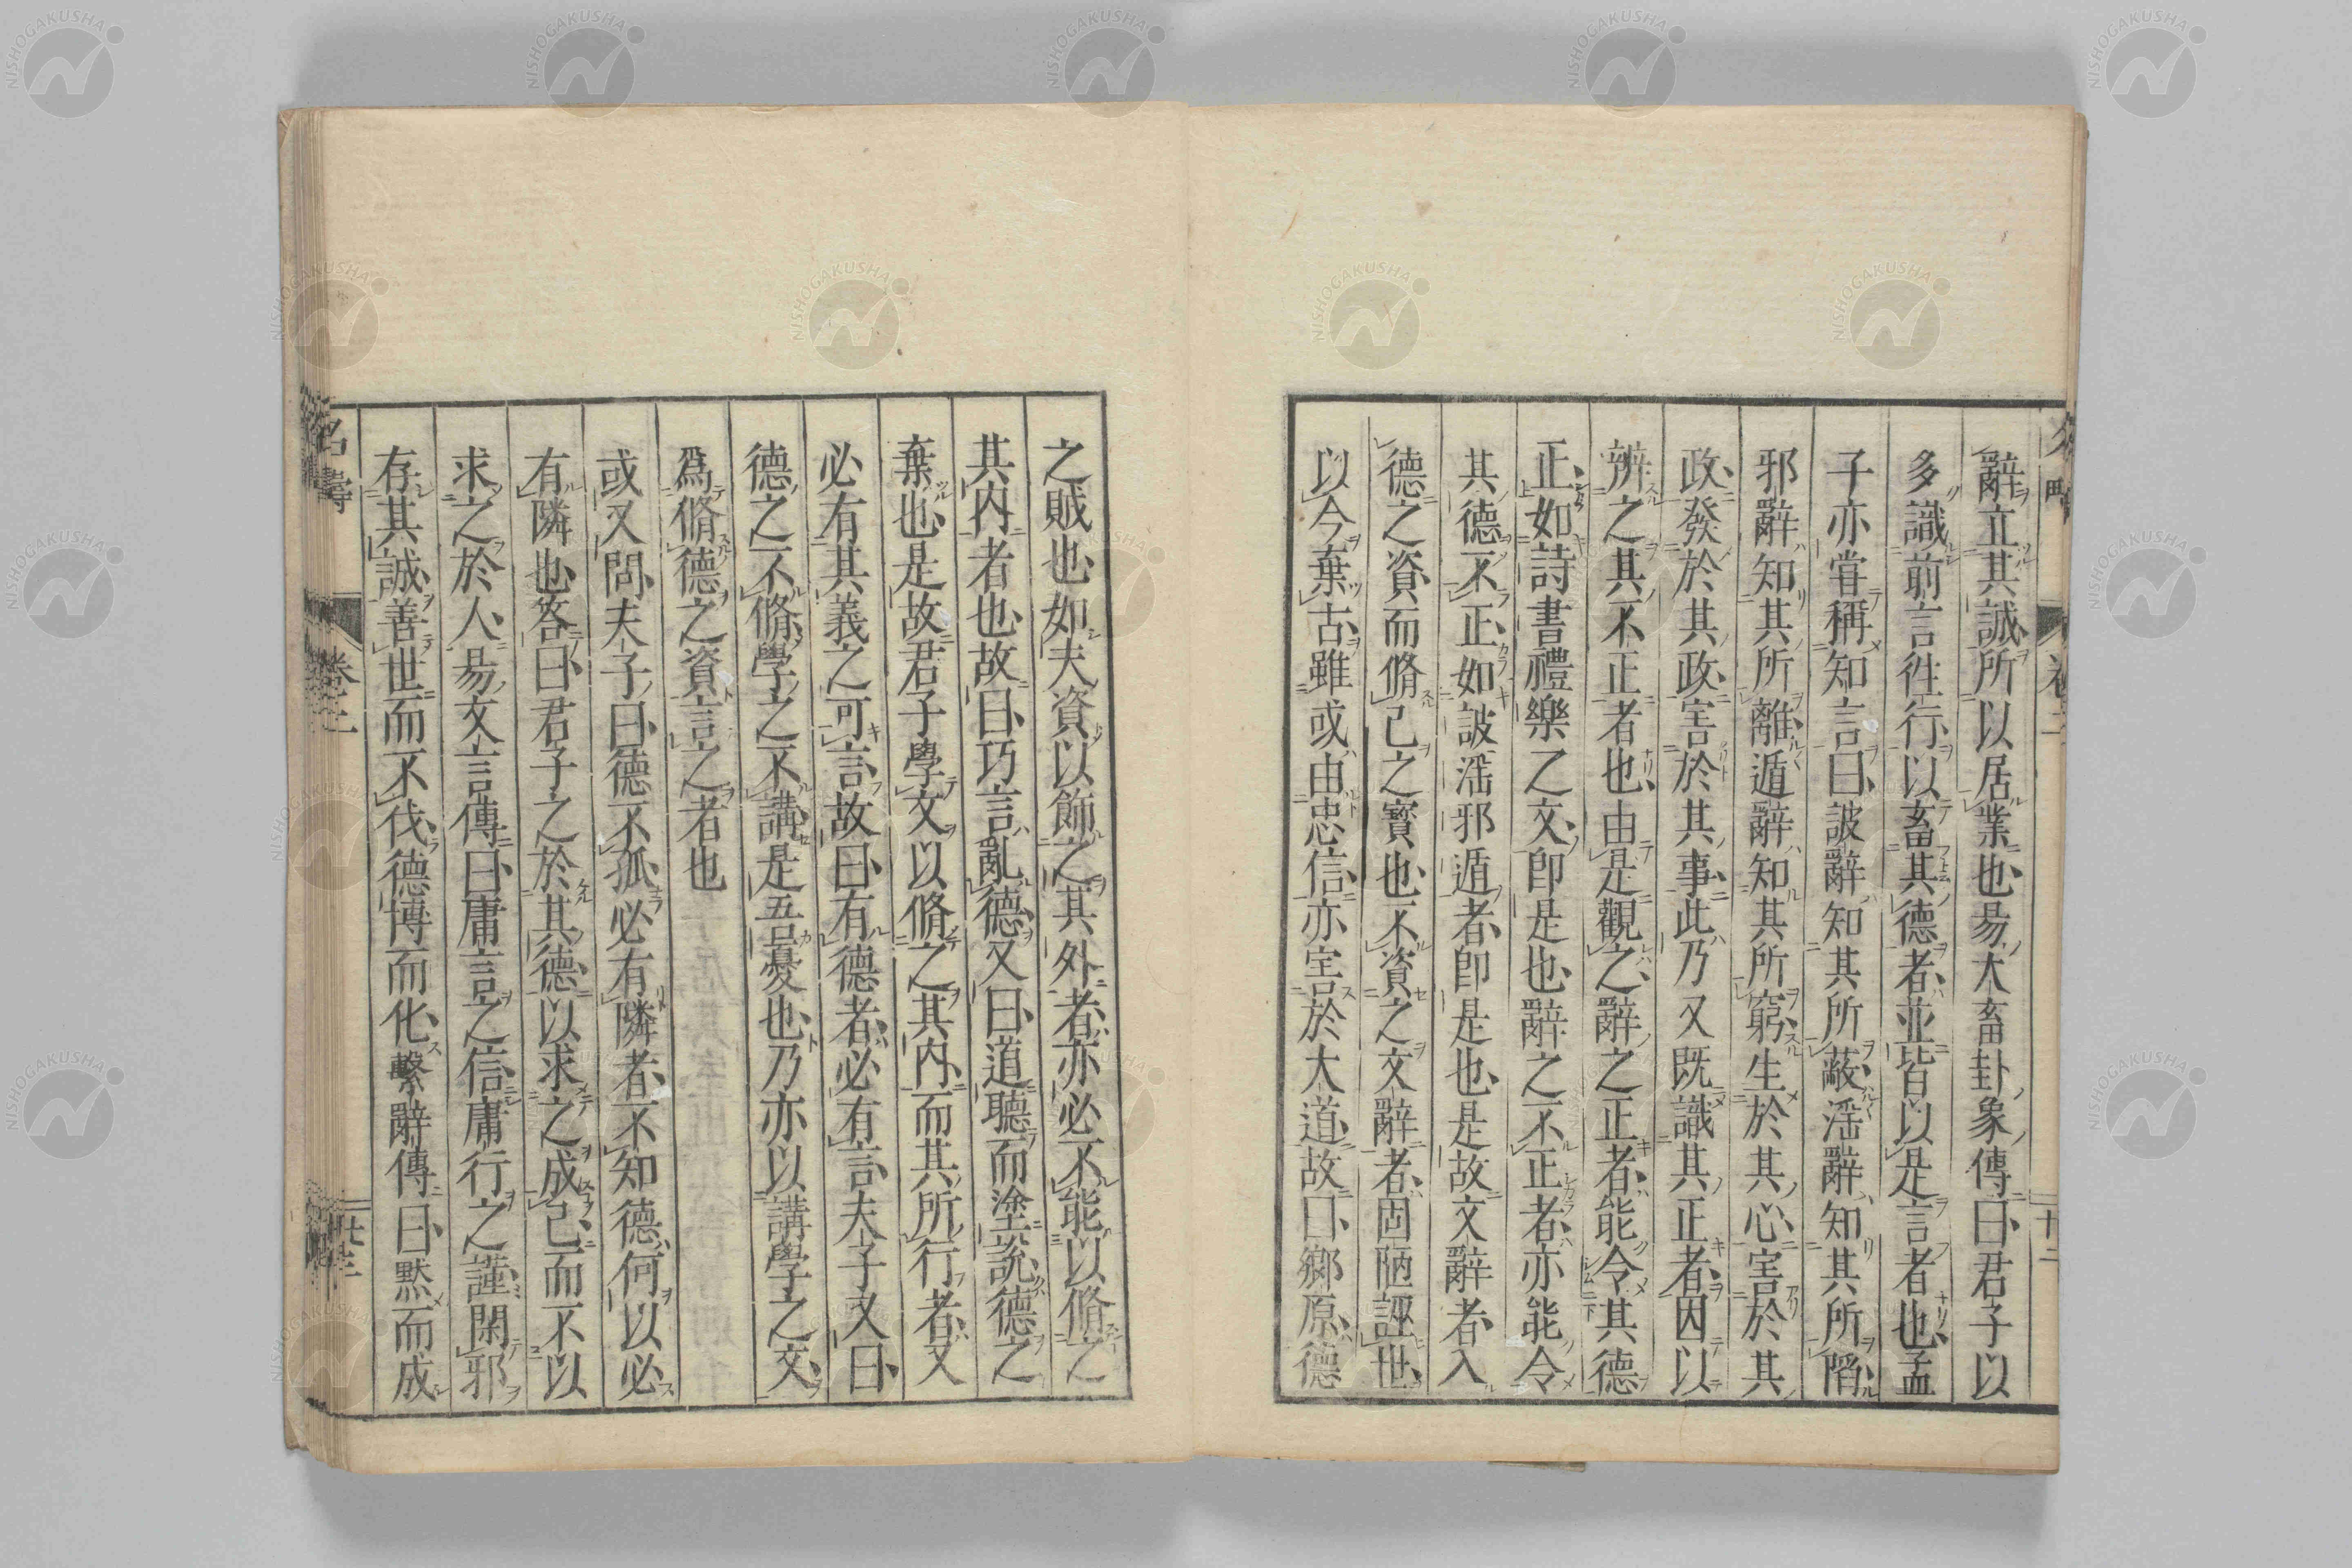 辭立其誠所以居業也易大畜卦象傳曰君子以
多識前言徃行以畜其德者並皆以是言者也孟
子亦甞稱知言曰詖辭知其所蔽淫辭知其所陷
邪辭知其所離遁辭知其所窮生於其心害於其
政發於其政害於其事此乃又既識其正者因以
辨之其不正者也由是觀之辭之正者能令其德
正如詩書禮樂之文即是也辭之不正者亦能令
其德不正如詖淫邪遁者即是也是故文辭者入
德之資而脩己之寳也不資之文辭者固陋誣世
以今棄古雖或由忠信亦害於大道故曰鄉原德
之賊也如夫資以飾之其外者亦必不能以脩之
其内者也故曰巧言亂德又曰道聽而塗説德之
棄也是故君子學文以脩之其内而其所行者又
必有其義之可言故曰有德者必有言夫子又曰
德之不脩學之不講是吾憂也乃亦以講學之文
爲脩德之資言之者也
或又問夫子曰德不孤必有隣者不知德何以必
有隣也答曰君子之於其德以求之成己而不以
求之於人易文言傳曰庸言之信庸行之謹閑邪
存其誠善世而不伐德博而化繫辭傳曰黙而成
名疇
卷二
NISHOGAKUSHA